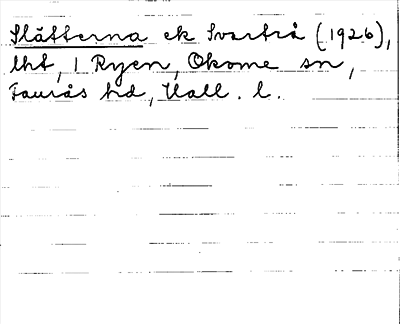 Slåtterna ek Svartrå (1926),
lht, 1 Ryen, Okome sn,
Faurås hd, Hall. l.